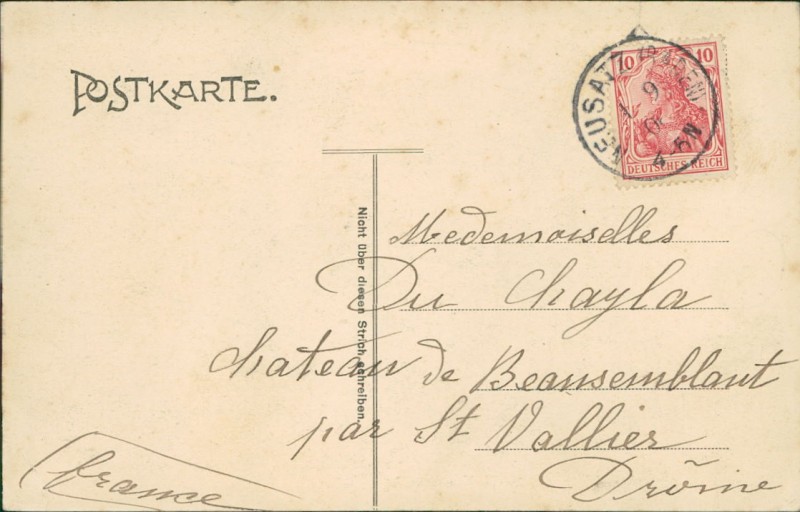 POSTKARTE.
10 10
DEUTSCHES REICH
NEUSATZ (BADEN)
1 9
Nicht über diesen Strich schreiben.
Medemoiselles
Du Chayla
chateau de Beausemblant
par St Vallier
Drôme
france